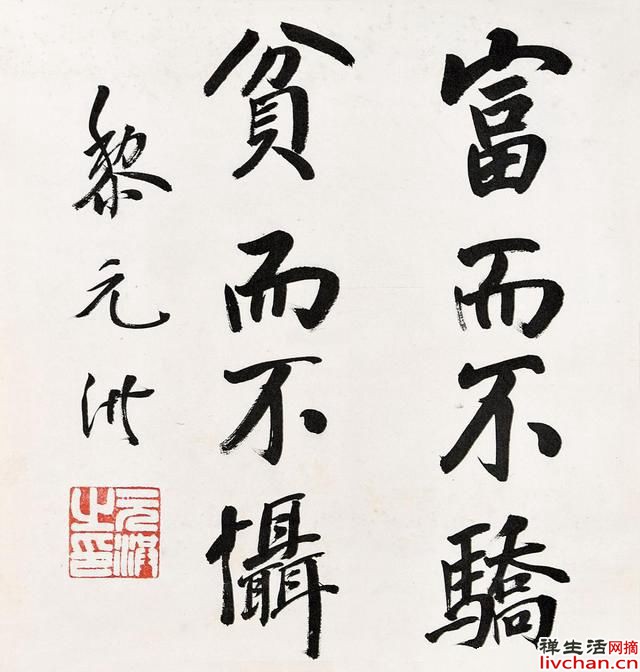 富而不驕
貧而不懾
黎元洪
元洪之印
禅生活网摘
livchan.cn